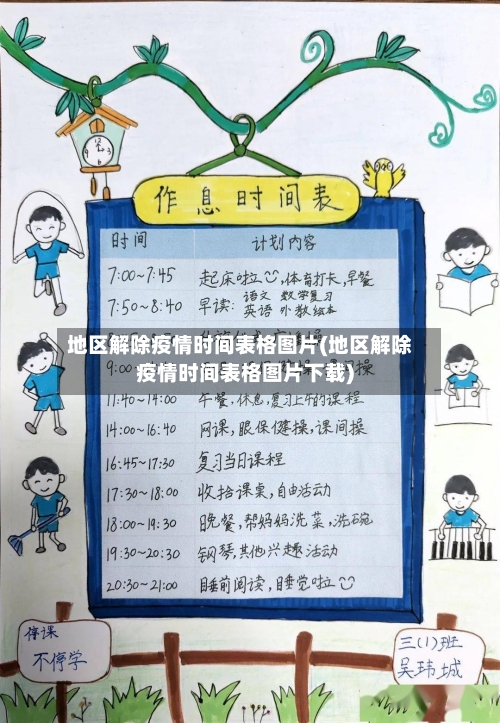 作息时间表
时间 计划内容
7:00~7:45 起床啦,体育打卡,早餐
7:50~8:40 早读: 语文 数学复习
英语 外教绘本
地区解除疫情时间表格图片(地区解除
疫情时间表格图片下载)
11:40~14:00 午餐,休息,复习上午的课程
14:00~16:40 网课,眼保健操,课间操
16:45~17:30 复习当日课程
17:30~18:00 收拾课桌,自由活动
18:00~19:30 晚餐,帮妈妈洗菜,洗碗
19:30~20:30 钢琴,其他兴趣活动
20:30~21:00 睡前阅读,睡觉啦
停课
不停学
三(1)班
吴玮城